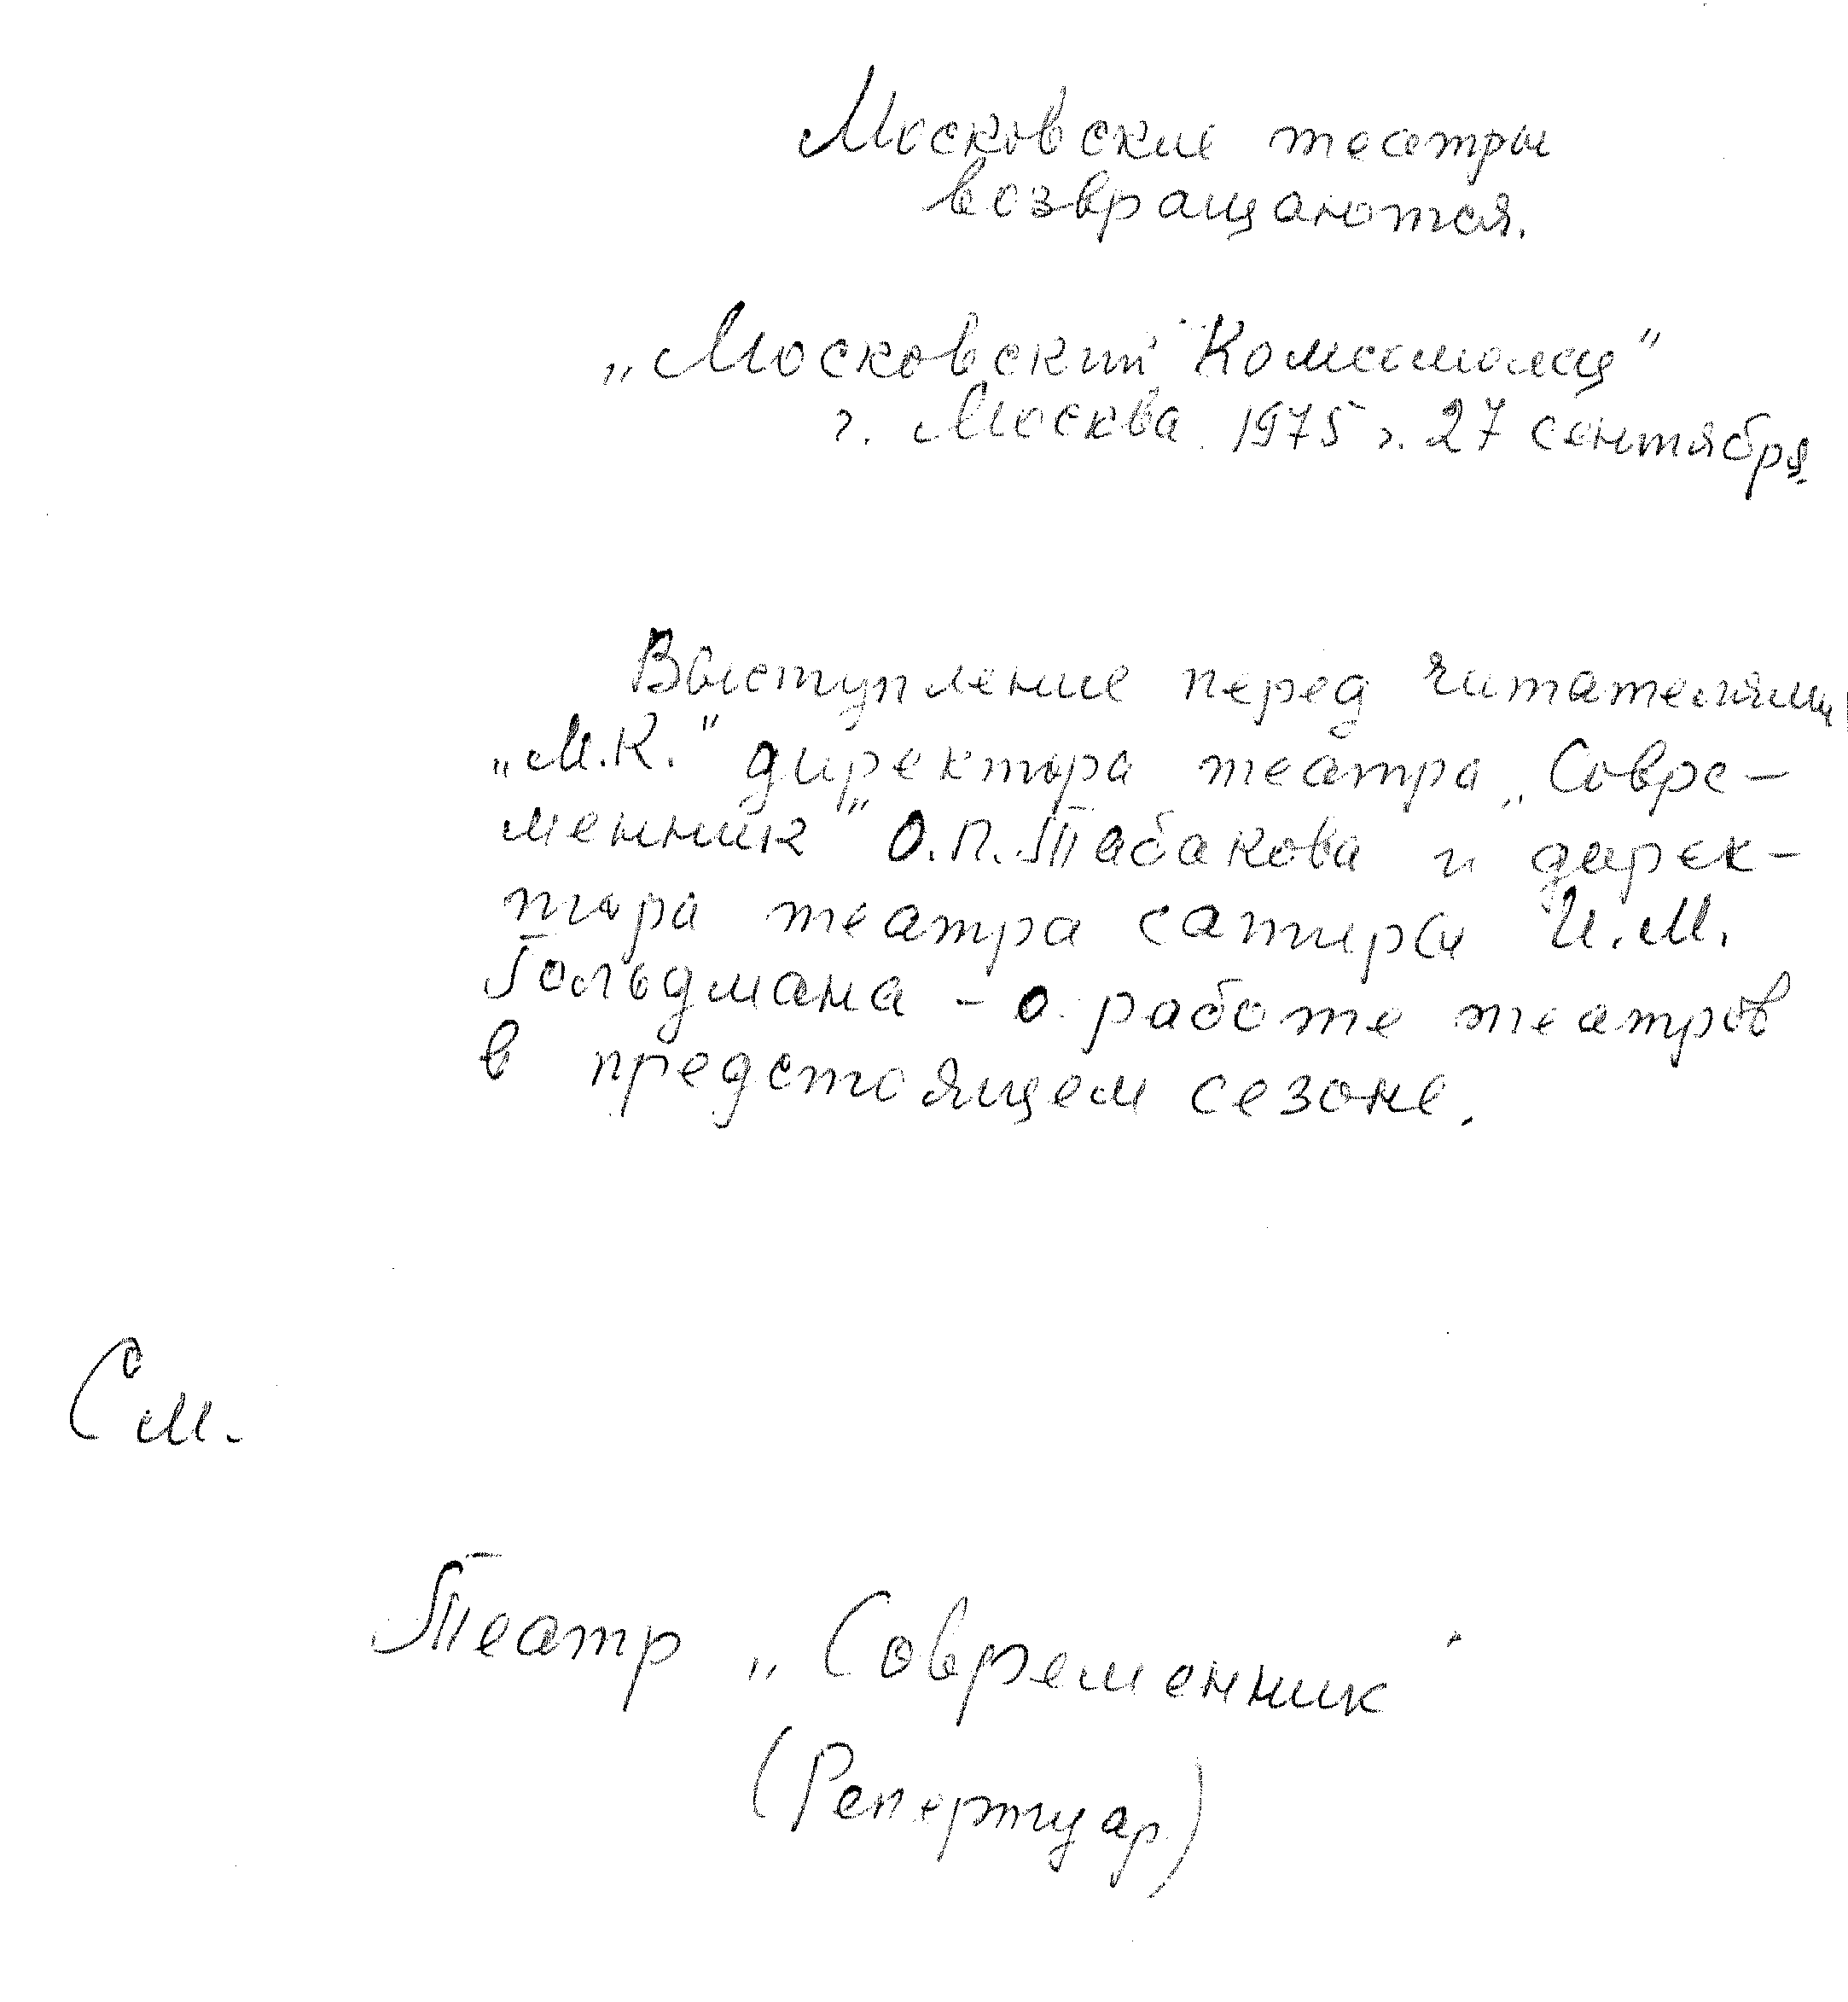 Московские театры
возвращаются.
„Московский Комсомолец"
г. Москва. 1975 г. 27 сентября
Выступление перед читателями
„М.К." директора театра „Совре-
менник" О.П. Табакова и дирек-
тора театра сатиры И.М.
Гольдмана - о работе театров
в предстоящем сезоне.
См.
Театр „Современник"
(Репертуар)